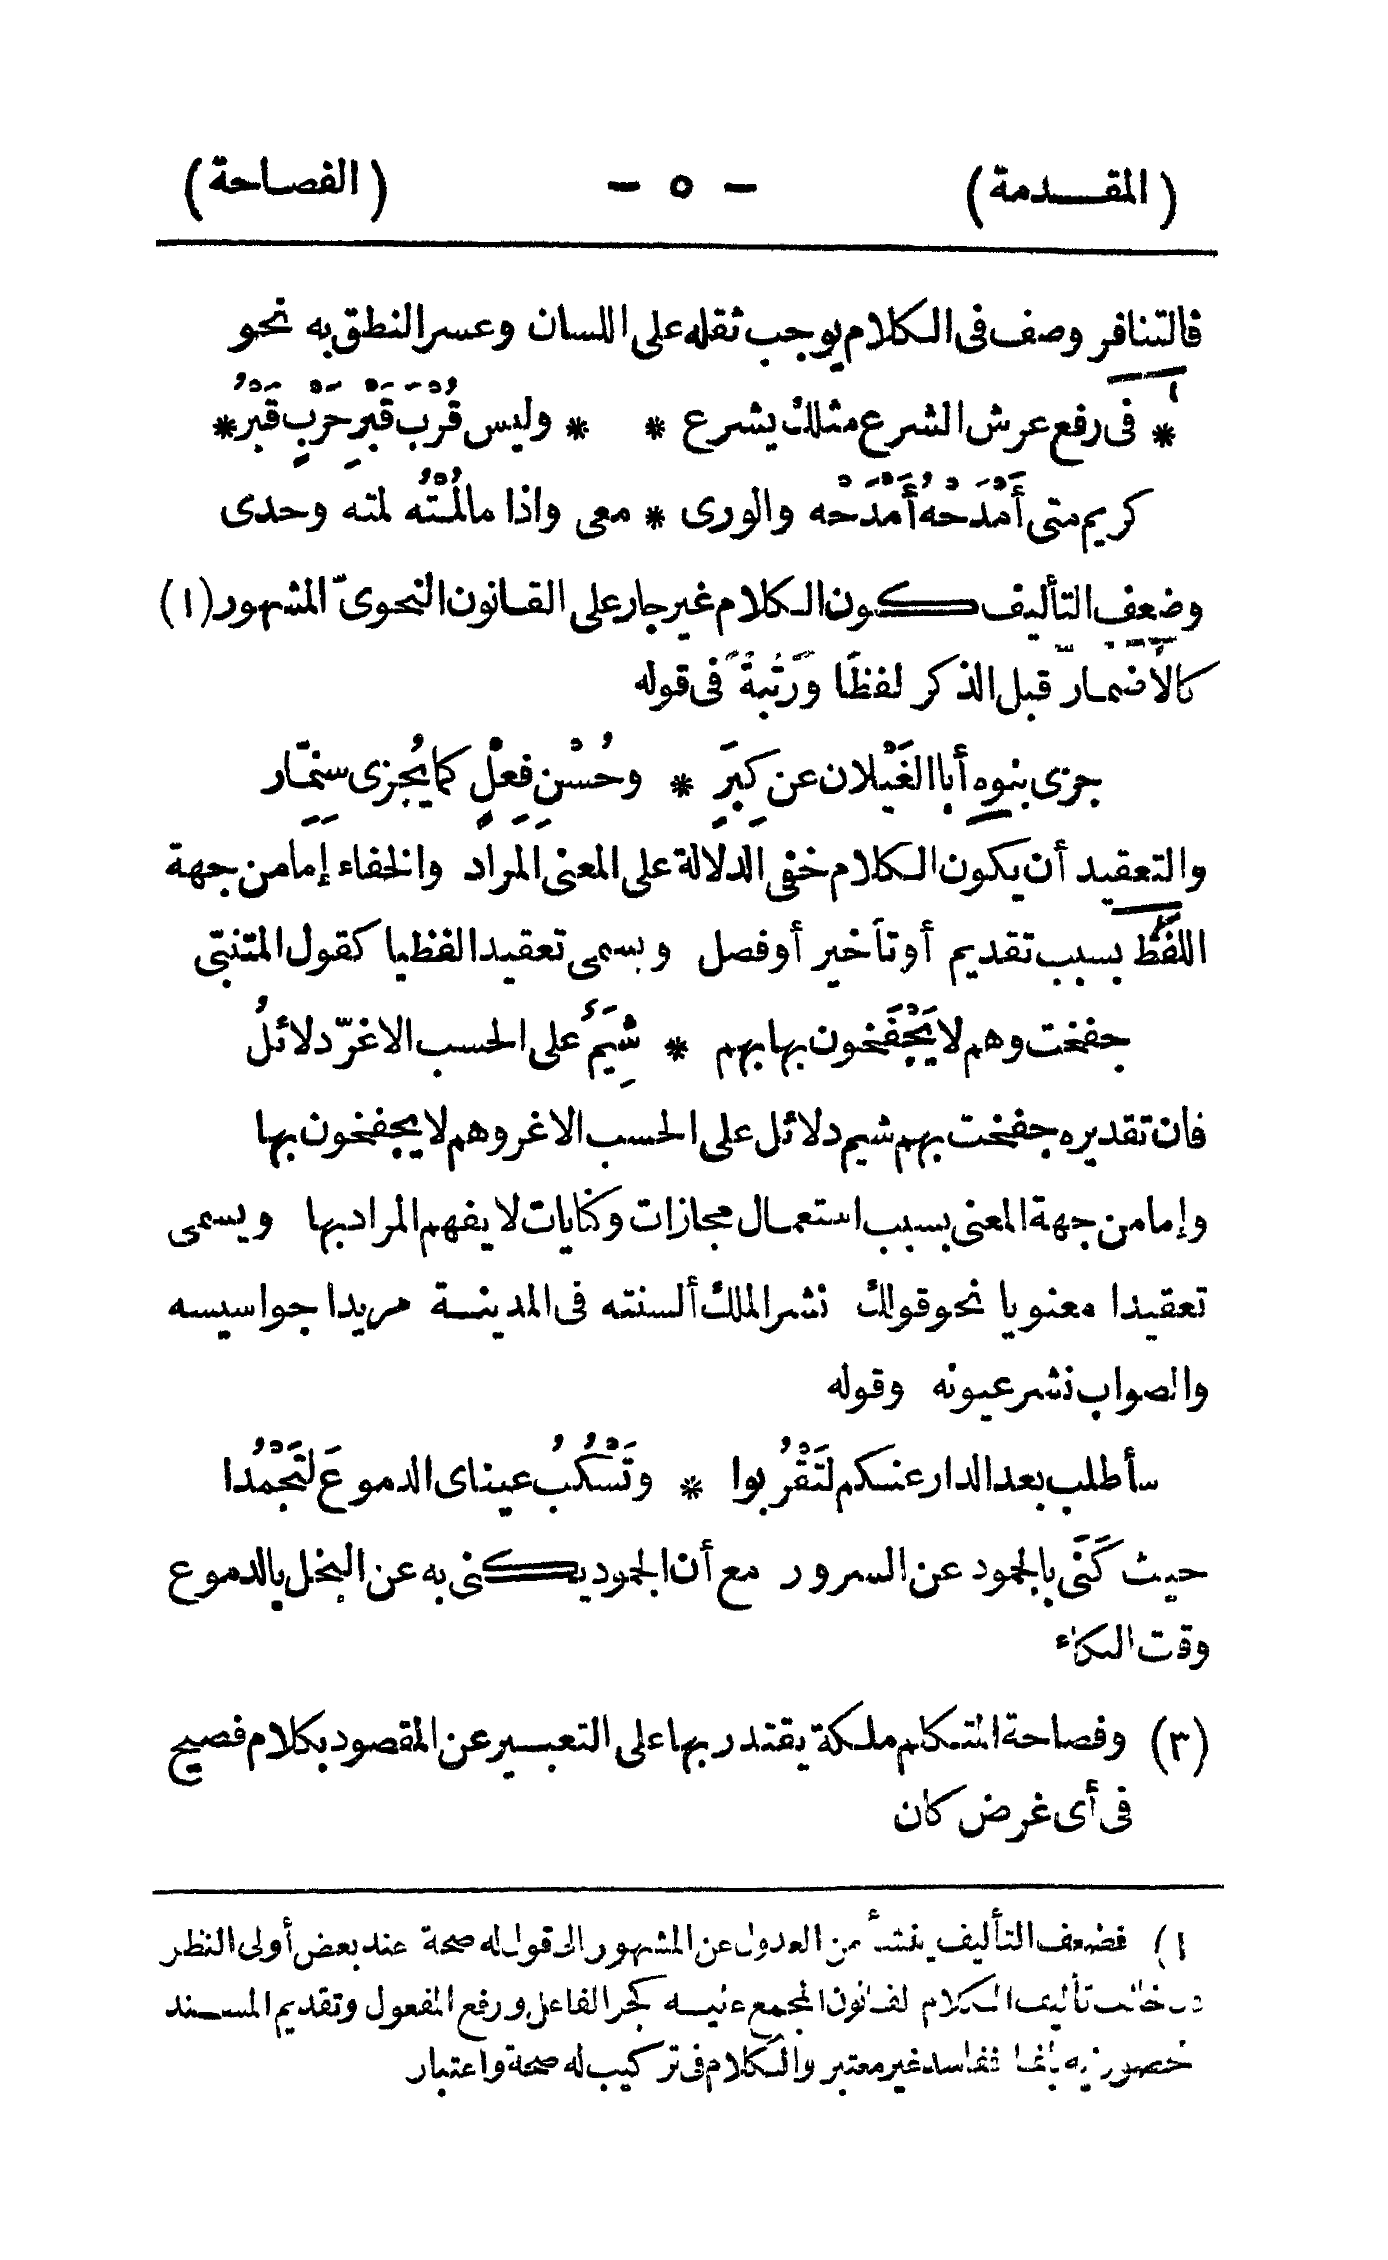 (المقدمة) - ٥ - (الفصاحة)
فالتنافر وصف فى الكلام يوجب ثقله على اللسان وعسر النطق به نحو
* فى رفع عرش الشرع مثلك يشرع * * وليس قُرْبَ قَبْرِ حَرْبٍ قَبْرُ *
كريم متى أَمْدَحْهُ أَمْدَحْه والورى * معى واذا مالُمْتُه لمته وحدى
وضعف التأليف كون الكلام غير جار على القانون النحوىّ المشهور (١)
كالاضمار قبل الذكر لفظًا ورُتْبةً فى قوله
جزى بنوه أبا الغَيْلان عن كِبَرٍ * وحُسْنِ فِعْلٍ كما يُجزى سِنِمّار
والتعقيد أن يكون الكلام خفى الدلالة على المعنى المراد والخفاء إما من جهة
اللفظ بسبب تقديم أو تأخير أو فصل ويسمى تعقيدا لفظيا كقول المتنبّى
جفخت وهم لا يَجْفَخون بها بهم * شِيَمٌ على الحسب الاغرّ دلائلُ
فان تقديره جفخت بهم شيم دلائل على الحسب الاغر وهم لا يجفخون بها
وإما من جهة المعنى بسبب استعمال مجازات وكنايات لا يفهم المراد بها ويسمى
تعقيدا معنويا نحو قولك نشر الملك ألسنته فى المدينة مريدا جواسيسه
والصواب نشر عيونه وقوله
سأطلب بعد الدار عنكم لتَقْرُبوا * وتَسْكُبُ عيناى الدموعَ لتَجْمُدا
حيث كَنَى بالجمود عن السرور مع أن الجمود يكنى به عن البخل بالدموع
وقت البكاء
(٣) وفصاحة المتكلم ملكة يقتدر بها على التعبير عن المقصود بكلام فصيح
فى أى غرض كان
١) فضعف التأليف ينشأ من العدول عن المشهور الى قول له صحة عند بعض أولى النظر
تأليف الكلام لقانون المجمع كجر الفاعل ورفع المفعول وتقديم المسند
ففاسد غير معتبر والكلام فى تركيب له صحة واعتبار